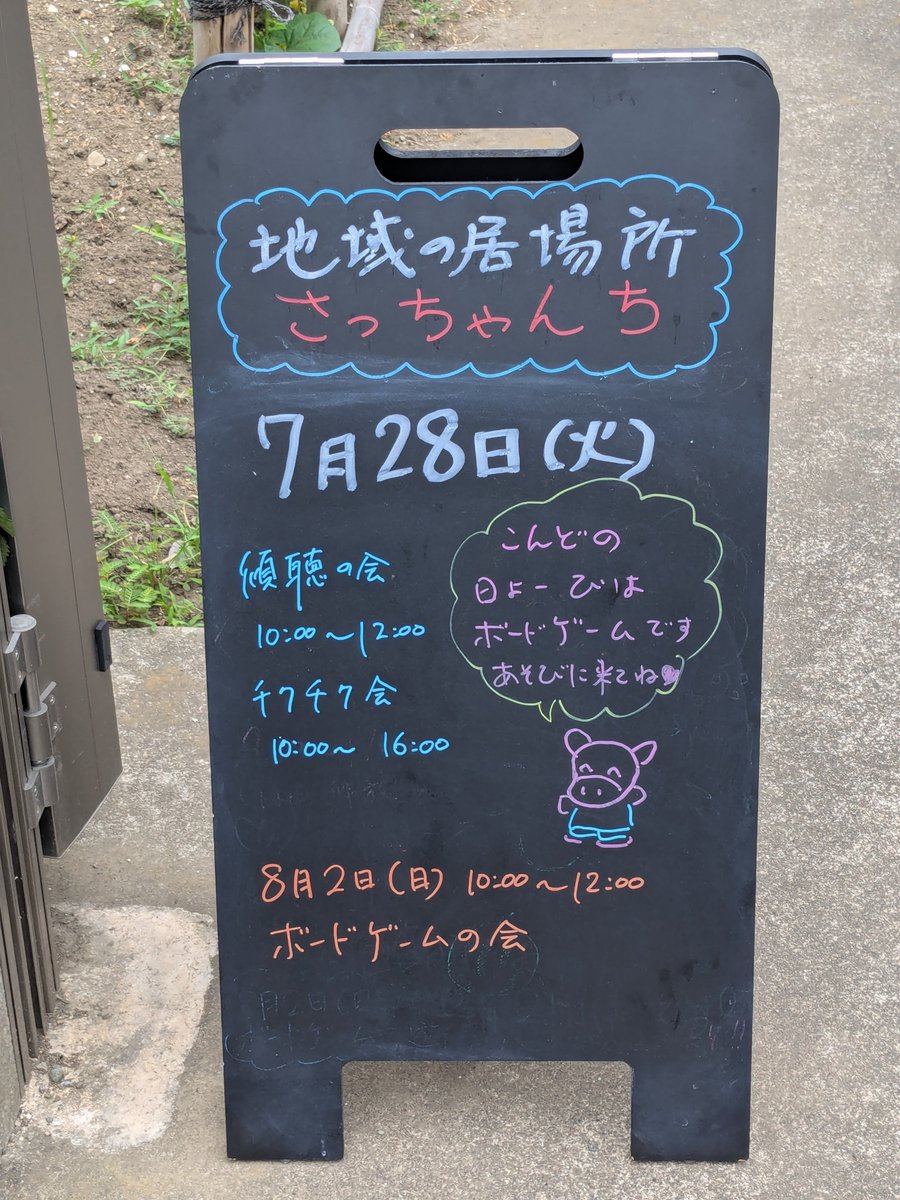 地域の居場所
さっちゃんち
7月28日(火)
傾聴の会
10:00~12:00
チクチク会
10:00~ 16:00
こんどの
日よーびは
ボードゲームです
あそびに来てね
8月2日(日) 10:00~12:00
ボードゲームの会